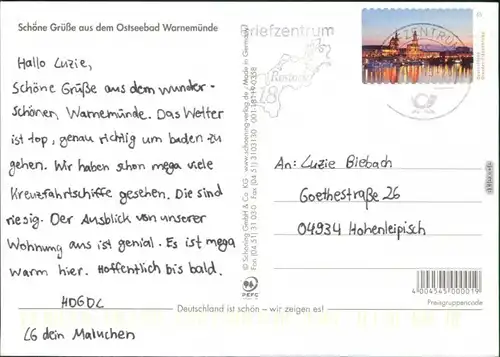 Schöne Grüße aus dem Ostseebad Warnemünde
Hallo Luzie,
Schöne Grüße aus dem wunder-
schönen, Warnemünde. Das Wetter
ist top, genau richtig um baden zu
gehen. Wir haben schon mega viele
Kreuzfahrtschiffe gesehen. Die sind
riesig. Der Ausblick von unserer
Wohnung aus ist genial. Es ist mega
warm hier. Hoffentlich bis bald.
HDGDL
LG dein Maluchen
Deutschland ist schön – wir zeigen es!
© Schöning GmbH & Co. KG · www.schoening-verlag.de / Made in Germany
Fon (04 51) 31 03 0 · Fax (04 51) 3103130
PEFC
Briefzentrum
Rostock
18
BRIEFZENTRUM
An: Luzie Biebach
Goethestraße 26
04934 Hohenleipisch
4 004545 000019
Preisgruppencode